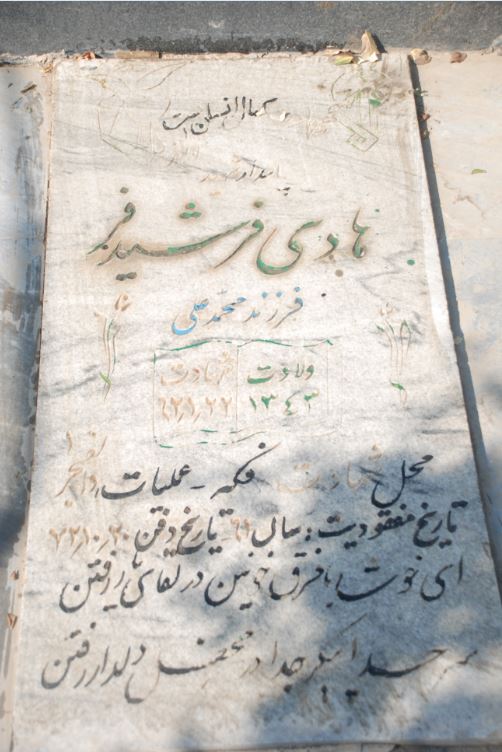 کمال انسان است
پاسدار شهید
هادی فرشید فر
فرزند محمد علی
ولادت شهادت
۱۳۴۳ ۶۲٫۱٫۲۲
محل شهادت فکه - عملیات والفجر ۱
تاریخ مفقودیت : سال ۶۲ تاریخ دفن ۷۲٫۱۰٫۲۰
ای خوشا با فرق خونین در لقای یار رفتن
سر جدا پیکر جدا در محفل دلدار رفتن